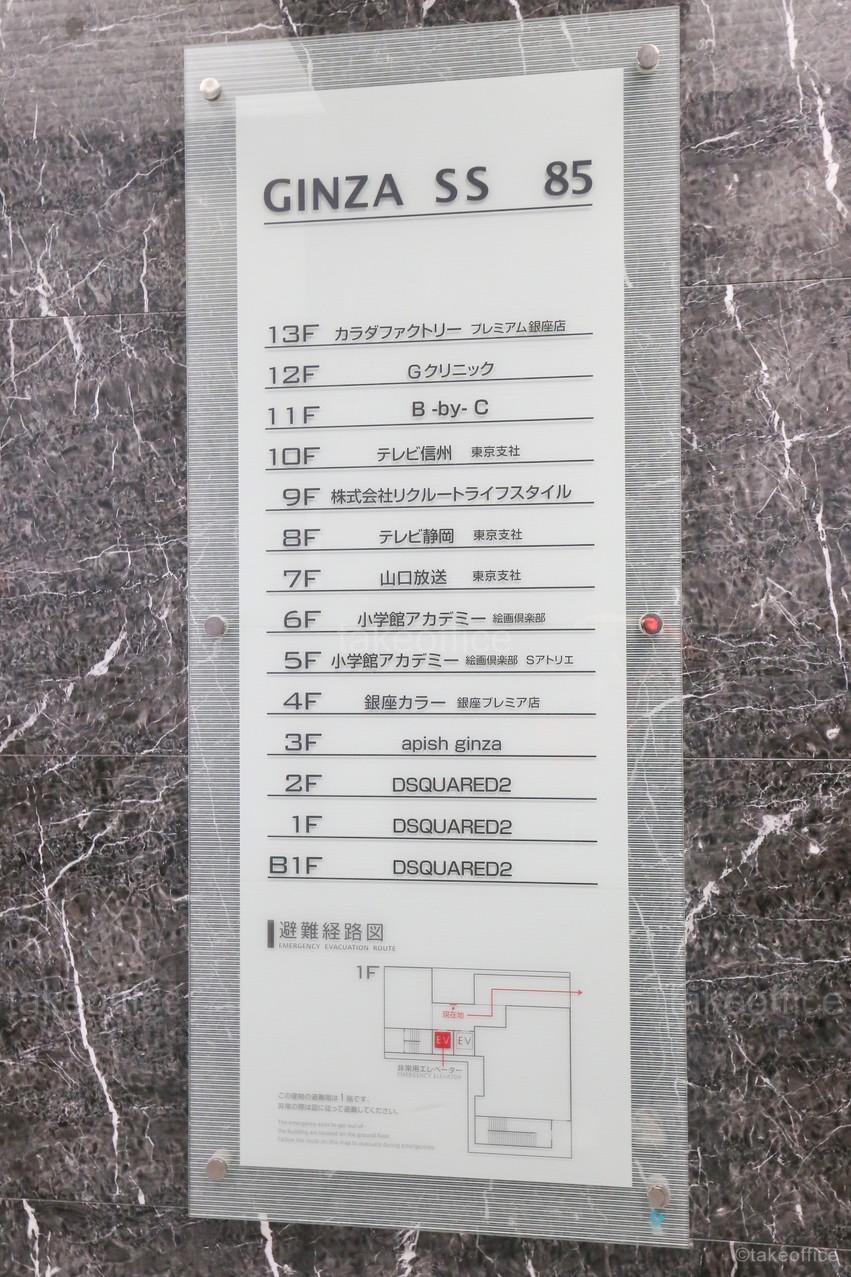 GINZA SS 85
13F カラダファクトリー プレミアム銀座店
12F Gクリニック
11F B -by- C
10F テレビ信州 東京支社
9F 株式会社リクルートライフスタイル
8F テレビ静岡 東京支社
7F 山口放送 東京支社
6F 小学館アカデミー 絵画倶楽部
5F 小学館アカデミー 絵画倶楽部 Sアトリエ
4F 銀座カラー 銀座プレミア店
3F apish ginza
2F DSQUARED2
1F DSQUARED2
B1F DSQUARED2
避難経路図
EMERGENCY EVACUATION ROUTE
1F
現在地
EV EV
非常用エレベーター
EMERGENCY ELEVATOR
この建物の避難階は1階です。
非常の際は図に従って避難してください。
The emergency exits to get out of
the building are located on the ground floor.
Follow the route on this map to evacuate during emergencies.
takeoffice
takeoffice
takeoffice
©takeoffice